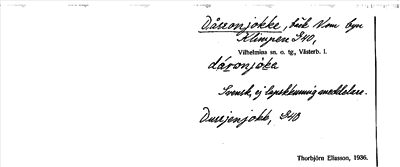 Dåsonjokke, bäck V om byn
Klimpen S40,
Vilhelmina sn. o. tg., Västerb. l.
dåronjåka
Svensk, ej lapskkunnig meddelare.
S40
Thorbjörn Eliasson, 1936.